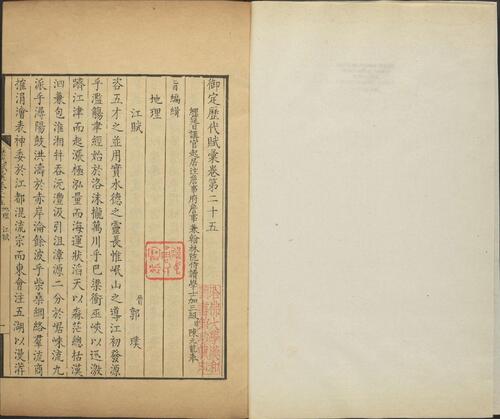 御定歷代賦彙卷第二十五
經筵日講官起居注詹事府詹事兼翰林院侍讀學士加三級臣陳元龍奉
旨編輯
地理
江賦
晉郭璞
咨五才之並用實水德之靈長惟岷山之導江初發源
乎濫觴聿經始於洛沬攏萬川乎巴梁衝巫峽以迅激
躋江津而起漲極泓量而海運狀滔天以淼茫總括漢
泗兼包淮湘幷吞沅澧汲引沮漳源二分於崌崍流九
派乎潯陽鼓洪濤於赤岸淪餘波乎柴桑網絡羣流商
搉涓澮表神委於江都混流宗而東會注五湖以漫漭
地理 江賦
一
哈佛大學漢和
圖書館珍藏印